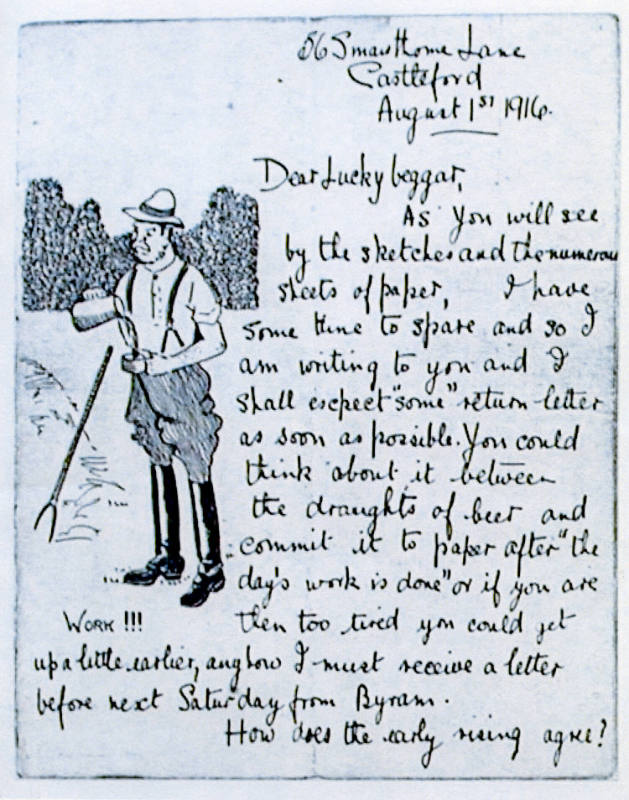 56 Smawthorne Lane
Castleford
August 1st 1916.
Dear Lucky beggar,
As you will see
by the sketches and the numerous
sheets of paper, I have
some time to spare and so I
am writing to you and I
shall escpect "some" return letter
as soon as possible. You could
think about it between
the draughts of beer and
commit it to paper after "the
day's work is done" or if you are
then too tired you could get
WORK !!!
up a little earlier, anyhow I must receive a letter
before next Saturday from Byram.
How does the early rising agree?